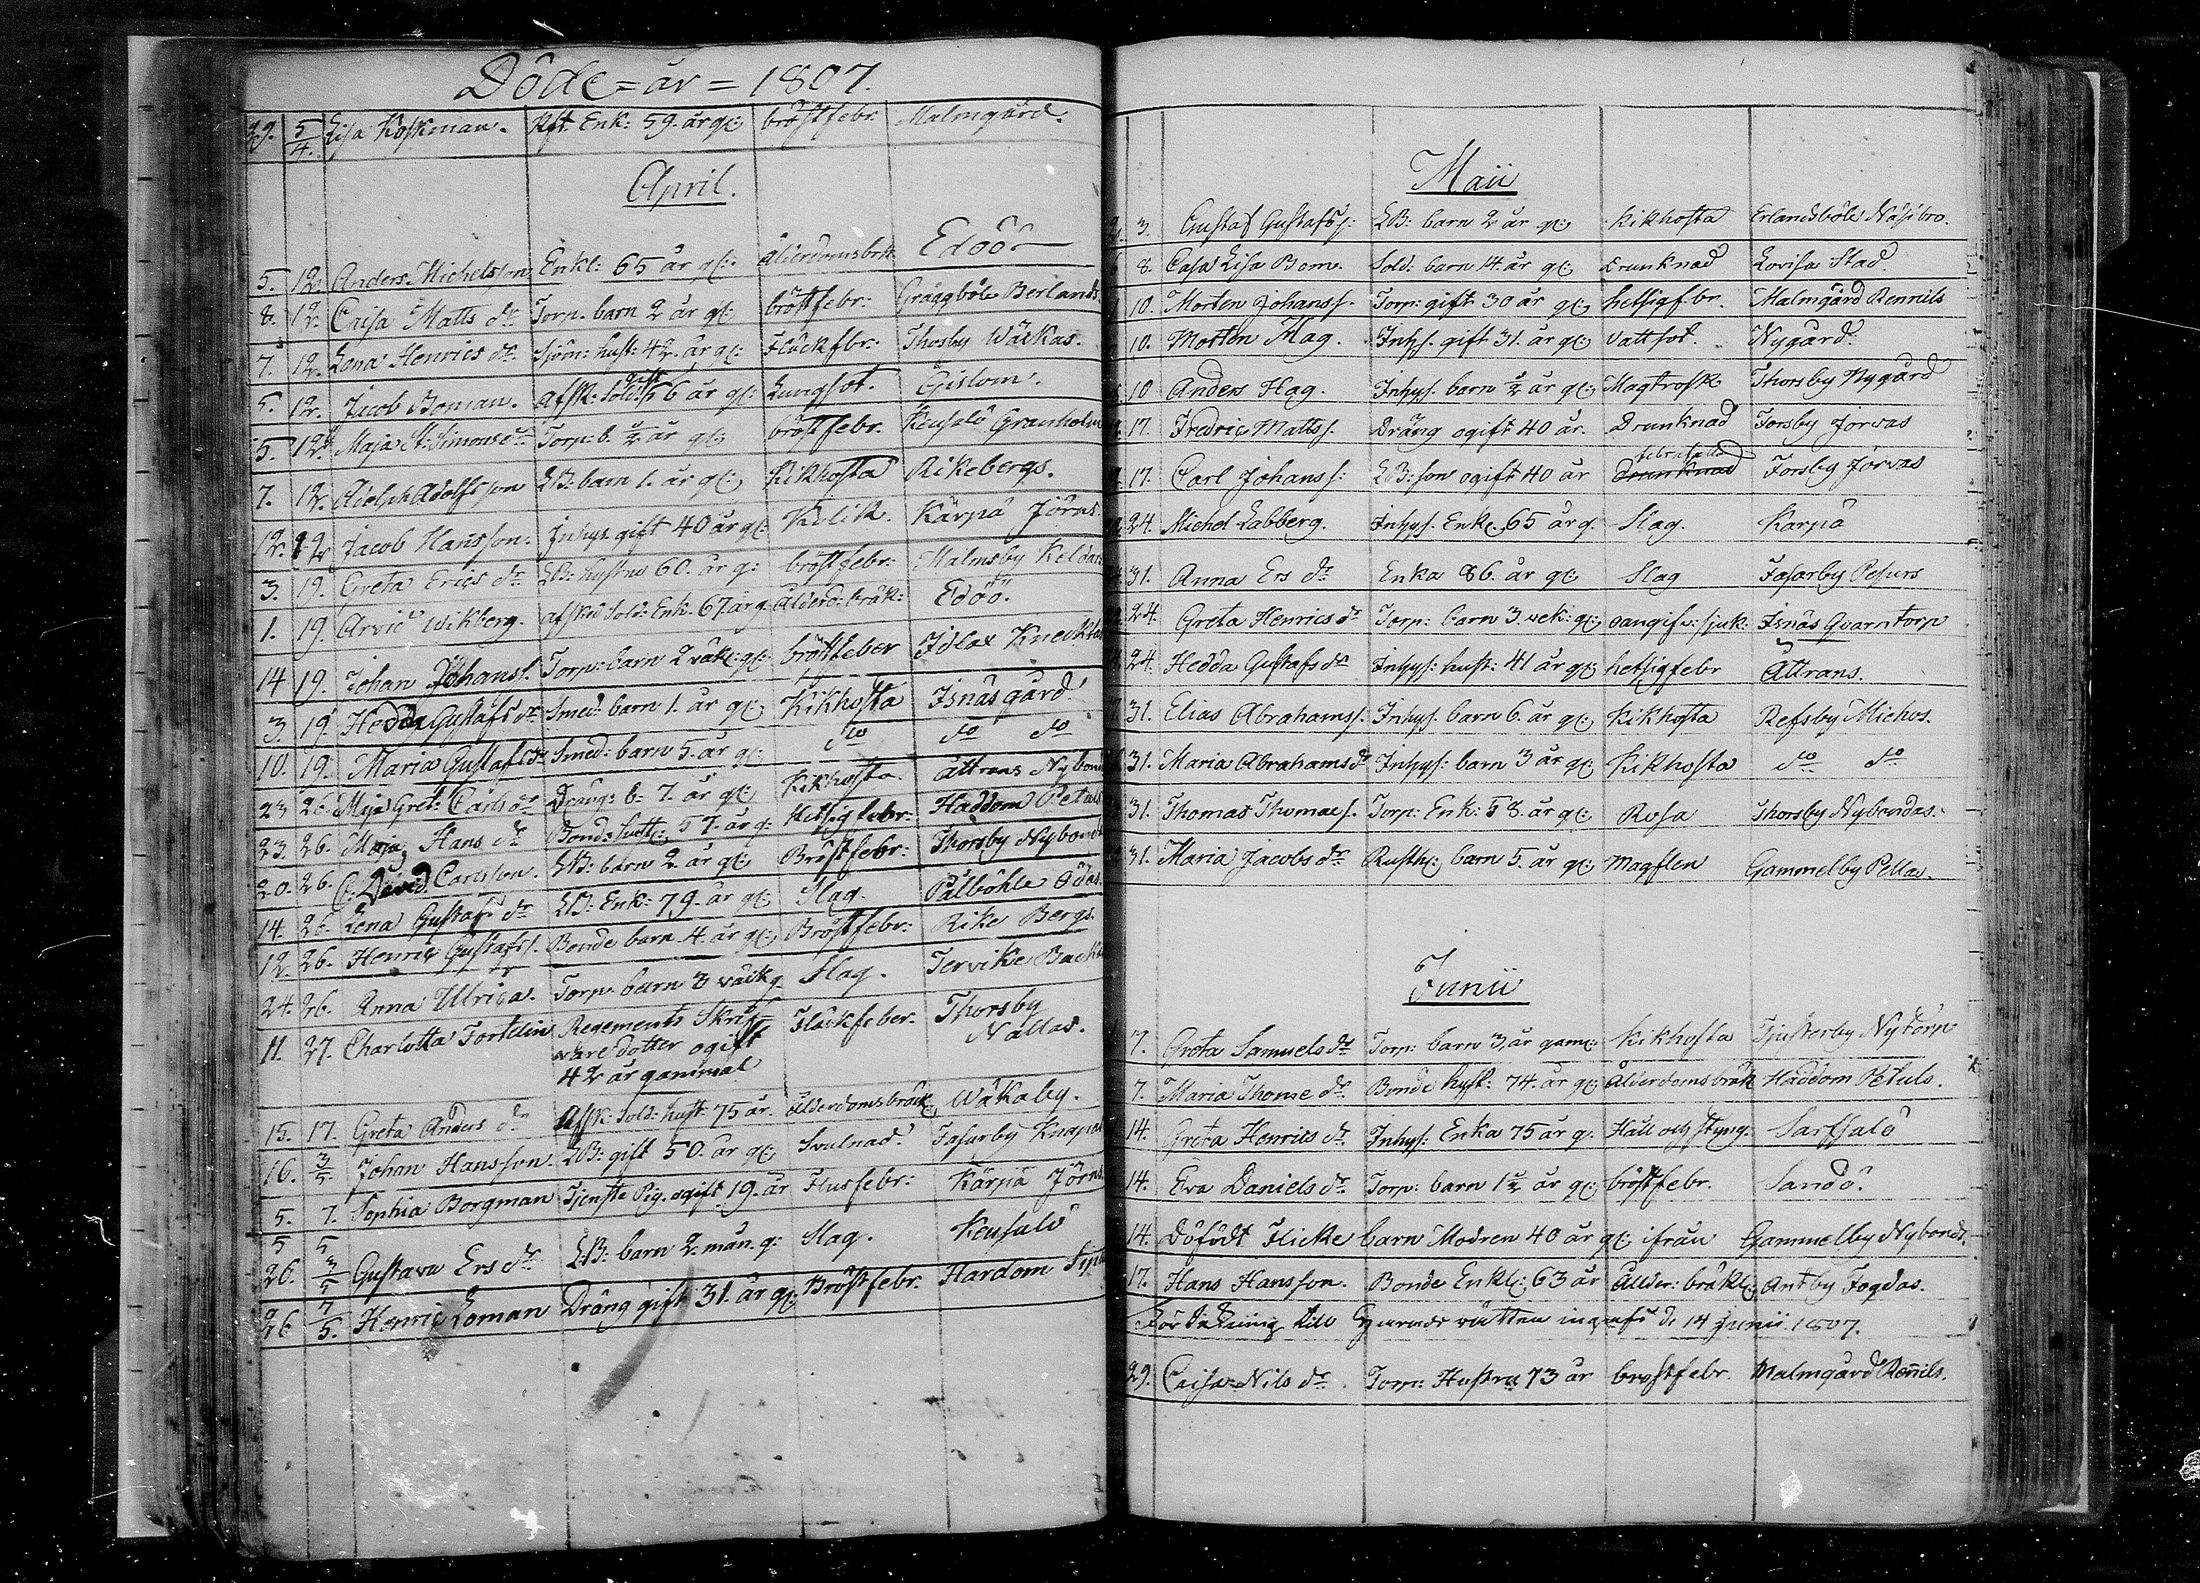 Döde = år = 1807.
29. 5/4. Lisa Koskman. Rft: Enk: 59. år gl: bröstfebr. Malmgård.
April.
5. 12. Anders Michelsson Enkl: 65 år gl: ålderdomsbr: Edöö
8. 12. Caisa Matts dr Torp. barn 2 år gl: bröstfebr: Gräggböle Berlands
7. 12. Lena Henrics dr Sjöm: hust: 42. år gl: Fläckfbr: Thosby Wäckas.
5. 12. Jacob Boman. afsk: sold: gift 56 år gl: Lungsot. Gislom.
5. 12. Maja St: Simons dr Torp: b. ½ år gl: bröstfebr. Keusalö Granholm
7. 12. Adolph Adolfsson LB: barn 1. år gl: Kikhosta Rikebergs.
12. 12 Jacob Hansson. Inhys gift 40 år gl: Kolik. Kärpä Jörns
3. 19. Greta Erics dr LB: hustru 60. år g: bröstfebr: Malmsby Keldars
1. 19. Arvid Wikberg. afsked sold: Enk: 67. år g. Ålderd: bråk: Edöö.
14 19. Johan Johanss. Torp: barn 2 väk: gl: bröstfeber Idlax Knecktas
3. 19. Hedda Gustafs dr Smed: barn 1. år gl: Kikhosta Isnäs gård
10. 19. Maria Gustafs dr Smed: barn 5. år gl: do do do
23 26. Maja Gret: Carls dr Dräng: b: 7. år gl: Kikhosta. Attrans Nybond
23. 26. Maja Hans dr Bond: hust: 57. år g: Hetsigfebr: Haddom Petals
20. 26. C: David Carlsson. LB: barn 2 år gl: Bröstfebr: Thorsby Nybond
14. 26. Lena Gustafs dr LB: Enk: 79. år gl: Slag. Pålböhle Ödas
12. 26. Henric Gustafss. Bonde barn 4. år gl: Bröstfebr: Rike Bergs.
24. 26. Anna Ulrica. Torp: barn 3 väck g Slag. Tervike Backa
11. 27. Charlotta Fortelin Regements Skrif= Fläckfeber. Thorsby
vare dotter ogift Nallas.
42 år gammal
15. 17. Greta Anders dr Afsk: sold: hust: 75 år. ålderdomsbräck. Wåkaby.
16. 3/5. Johan Hansson. LB: gift 50. år gl: Svulnad. Fasarby Knapas
5. 7. Sophia Borgman Tjenste Pig. ogift 19. år Flusfebr: Kärpä Jörns
5 5
26. 3/5 Gustava Ers dr LB: barn 2. mån. g: Slag. Keusalö
26 7/5. Henric Loman Dräng gift 31. år gl: Bröstfebr. Hardom
Maii
3. Gustaf Gustafss: LB: barn 2 år gl: Kikhosta Erlandsböle Näsibro.
8. Casa Lisa Bom. Sold: barn 4. år gl: drunknad Lovisa Stad.
10. Morten Johanss. Torp: gift 30 år gl: hetsigfebr. Malmgård Rennils
10. Morten Hag. Inhys. gift 31. år gl: Vattsot. Nygård.
10 Anders Hag. Inhys. barn ½ år gl: Magtrosk Thorsby Nygård
17. Fredric Matts s. Dräng ogift 40 år. Drunknad Forsby Jorvas
17. Carl Johans s: LB: son ogift 40 år drunknad Forsby Jorvas
24. Michel Labberg. Inhys. Enkl. 65 år g. Slag. Karpä
31. Anna Ers dr Enka 86. år gl: Slag Fasarby Pesurs
24. Greta Henrics dr Torp: barn 3 vek: gl: oangifv: sjuk: Isnäs Qvarntorp
24. Hedda Gustafs dr Inhys: hust: 41 år gl: hetsigfebr Attrans.
31. Elias Abrahamss. Inhys. barn 6. år gl: Kikhosta Refsby Michos.
31. Maria Abrahams dr Inhys: barn 3 år gl: Kikhosta do do
31. Thomas Thomaes. Torp: Enk: 58. år gl: Rosa Thorsby Nybondas.
31. Maria Jacobs dr Rusth: barn 5. år gl: Magflen Gammelby Pellas.
Junii
7. Greta Samuels dr Torp: barn 3 år gam: Kikhosta Tjusterby Nytorp
7. Maria Thome dr Bonde hust: 74. år gl: Ålderdomsbräk Haddom Petuls.
14. Greta Henrics dr Inhys: Enka 75 år g. Håll och styng. Sarfsalö
14. Eva Daniels dr Torp: barn 1½ år gl: bröstfebr. Sandö.
14. Döfödt Flicke barn Modren 40 år gl: ifrån Gammelby Nybonds.
17. Hans Hansson. Bonde Enkl: 63 år Ålder: bräkl: Antby Fogdas.
14 Junii 1807.
29. Caisa Nils dr Torp: Hustru 73 år bröstfebr. Malmgård Rennils.